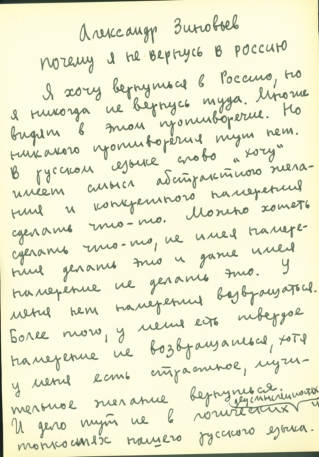 Александр Зиновьев
Почему я не вернусь в Россию
Я хочу вернуться в Россию, но
я никогда не вернусь туда. Многие
видят в этом противоречие. Но
никакого противоречия тут нет.
В русском языке слово "хочу"
имеет смысл абстрактного жела-
ния и конкретного намерения
сделать что-то. Можно хотеть
сделать что-то, не имея намере-
ния делать это и даже имея
намерение не делать это. У
меня нет намерения возвращаться.
Более того, у меня есть твердое
намерение не возвращаться, хотя
у меня есть страстное, мучи-
тельное желание вернуться.
И дело тут не в логических двусмысленностях
тонкостях нашего русского языка.